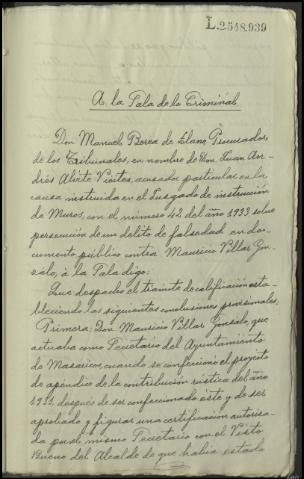 L.2548.939
A la Sala de lo Criminal
Don Manuel Borea de Llano Procurador
de los Tribunales, en nombre de Don Juan An-
drés Alirte Vieites, acusador particular en la
causa instruida en el Juzgado de instrucción
de Muros, con el número 42 del año 1933 sobre
persecución de un delito de falsedad en do-
cumento público contra Mauricio Villar Gon-
salo, á la Sala digo:
Que despacho el trámite de calificación esta-
bleciendo las siguientes conclusiones provisionales,
Primera: Don Mauricio Villar Gonsalo, que
actuaba como Secretario del Ayuntamiento
de Mazaricos, cuando se confeccionó el proyecto
de apéndice de la contribución rústica del año
1932 después de ser confeccionado éste y de ser
aprobado y figurar una certificación autoriza-
da por el mismo Secretario con el Visto
Bueno del Alcalde de que había estado